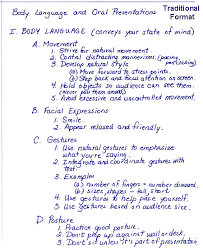 Body Language and Oral Presentations
Traditional Format
I. BODY LANGUAGE (conveys your state of mind)
A. Movement
1. Strive for natural movement.
2. Control distracting mannerisms. (pacing,
3. Develop natural style
(a) Move forward to stress points.
(b) Step back and focus attention on screen.
4. Hold objects so audience can see them.
(Never pass them around)
5. Avoid excessive and uncontrolled movement.
B. Facial Expressions
1. Smile.
2. Appear relaxed and friendly.
C. Gestures
1. Use natural gestures to emphasize
what you're saying.
2. Integrate and coordinate gestures with
text.
3. Examples
(a) number of fingers = number discussed.
(b) sizes, shapes - tall, short
4. Use gestures to help pace yourself.
5. Use gestures based on audience size.
D. Posture
1. Practice good posture.
2. Don't prop up against wall or desk.
3. Don't sit unless it's part of presentation.